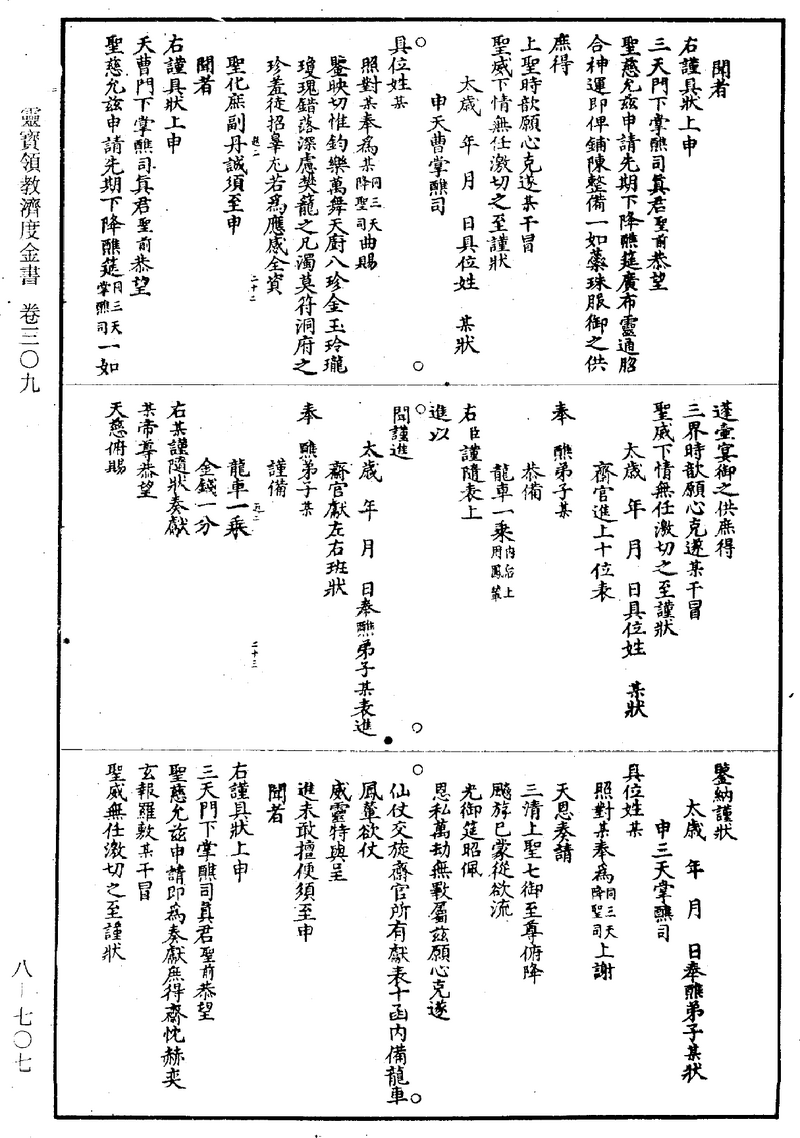 聞者
右謹具狀上申
三天門下掌醮司真君聖前恭望
聖慈允兹申請先期下降醮筵廣布靈通肸
合神運即俾鋪陳整備一如蘂珠服御之供
庶得
上聖時歆願心克遂某干冒
聖威下情無任激切之至謹狀
太歲 年 月 日具位姓 某狀
申天曹掌醮司
具位姓某
照對某奉爲某同三天降聖司曲賜
鑒映切惟鈞樂萬舞天廚八珍金玉玲瓏
瓊瑰錯落深慮樊籠之凡濁莫符洞府之
珍羞徒招辠尤若爲應感全賓
聖化庶副丹誠須至申
聞者
右謹具狀上申
天曹門下掌醮司真君聖前恭望
聖慈允兹申請先期下降醮筵同三天掌醮司一如
蓬壷宴御之供庶得
三界時歆願心克遂某干冒
聖威下情無任激切之至謹狀
太歲 年 月 日具位姓 某狀
齋官進上十位表
奉 醮弟子某
恭備
龍車一乘内后土用鳳輦
右臣謹隨表上
進以
聞謹進
太歲 年 月 日奉醮弟子某表進
齋官獻左右班狀
奉 醮弟子某
謹備
龍車一乘
金錢一分
右某謹隨狀奏獻
某帝尊恭望
天慈俯賜
鑒納謹狀
太歲 年 月 日奉醮弟子某狀
申三天掌醮司
具位姓某
照對某奉爲同三天降聖司上謝
天恩奏請
三清上聖七御至尊俯降
飈斿已蒙從欲流
光御筵昭佩
恩私萬劫無斁屬兹願心克遂
仙仗交旋齋官所有獻表十函内備龍車
鳳輦欲仗
威靈特與呈
進未敢擅便須至申
聞者
右謹具狀上申
三天門下掌醮司真君聖前恭望
聖慈允兹申請即爲奏獻庶得齋忱赫奕
玄報羅敷某干冒
聖威無任激切之至謹狀
靈寶領教濟度金書 卷三〇九
八—七〇七